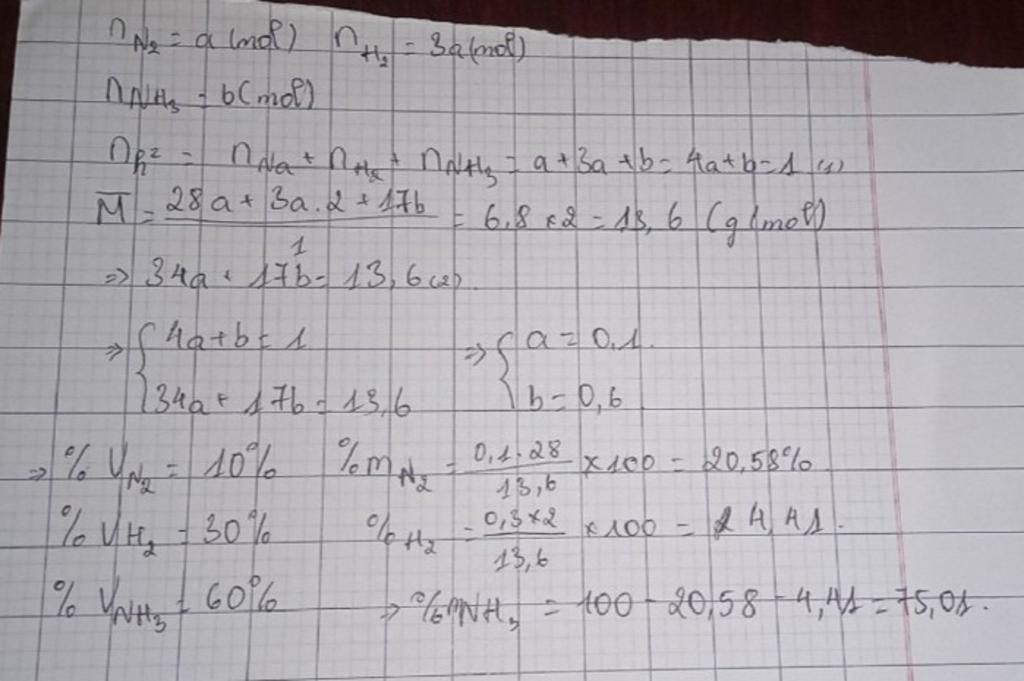 n_N₂ = a (mol) n_H₂ = 3a (mol)
n_NH₃ = b (mol)
n_h² = n_Na + n_H₂ + n_NH₃ = a + 3a + b = 4a + b = 1 (1)
M̅ = (28a + 3a.2 + 17b)/1 = 6,8 × 2 = 13,6 (g/mol)
⇒ 34a + 17b = 13,6 (2).
⇒ { 4a + b = 1 ⇒ { a = 0,1.
34a + 17b = 13,6 b = 0,6
⇒ % V_N₂ = 10% %m_N₂ = (0,1.28)/(13,6) × 100 = 20,58%
% V_H₂ = 30% %_H₂ = (0,3×2)/(13,6) × 100 = 4,41.
% V_NH₃ = 60% ⇒ %mNH₃ = 100 - 20,58 - 4,41 = 75,01.